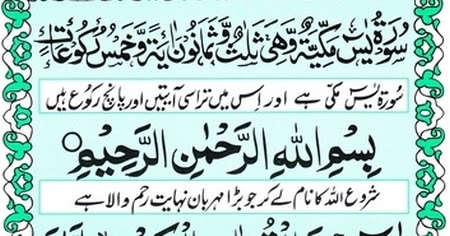 سُوْرَةُ يٰسٓ مَكِّيَّةٌ وَّهِيَ ثَلٰثٌ وَّثَمَانُوْنَ اٰيَةً وَّخَمْسُ رُكُوْعَاتٍ
سورۃ یٰسٓ مکی ہے اور اس میں تراسی آیتیں اور پانچ رکوع ہیں
بِسْمِ اللّٰهِ الرَّحْمٰنِ الرَّحِيْمِ
شروع اللہ کا نام لے کر جو بڑا مہربان نہایت رحم والا ہے